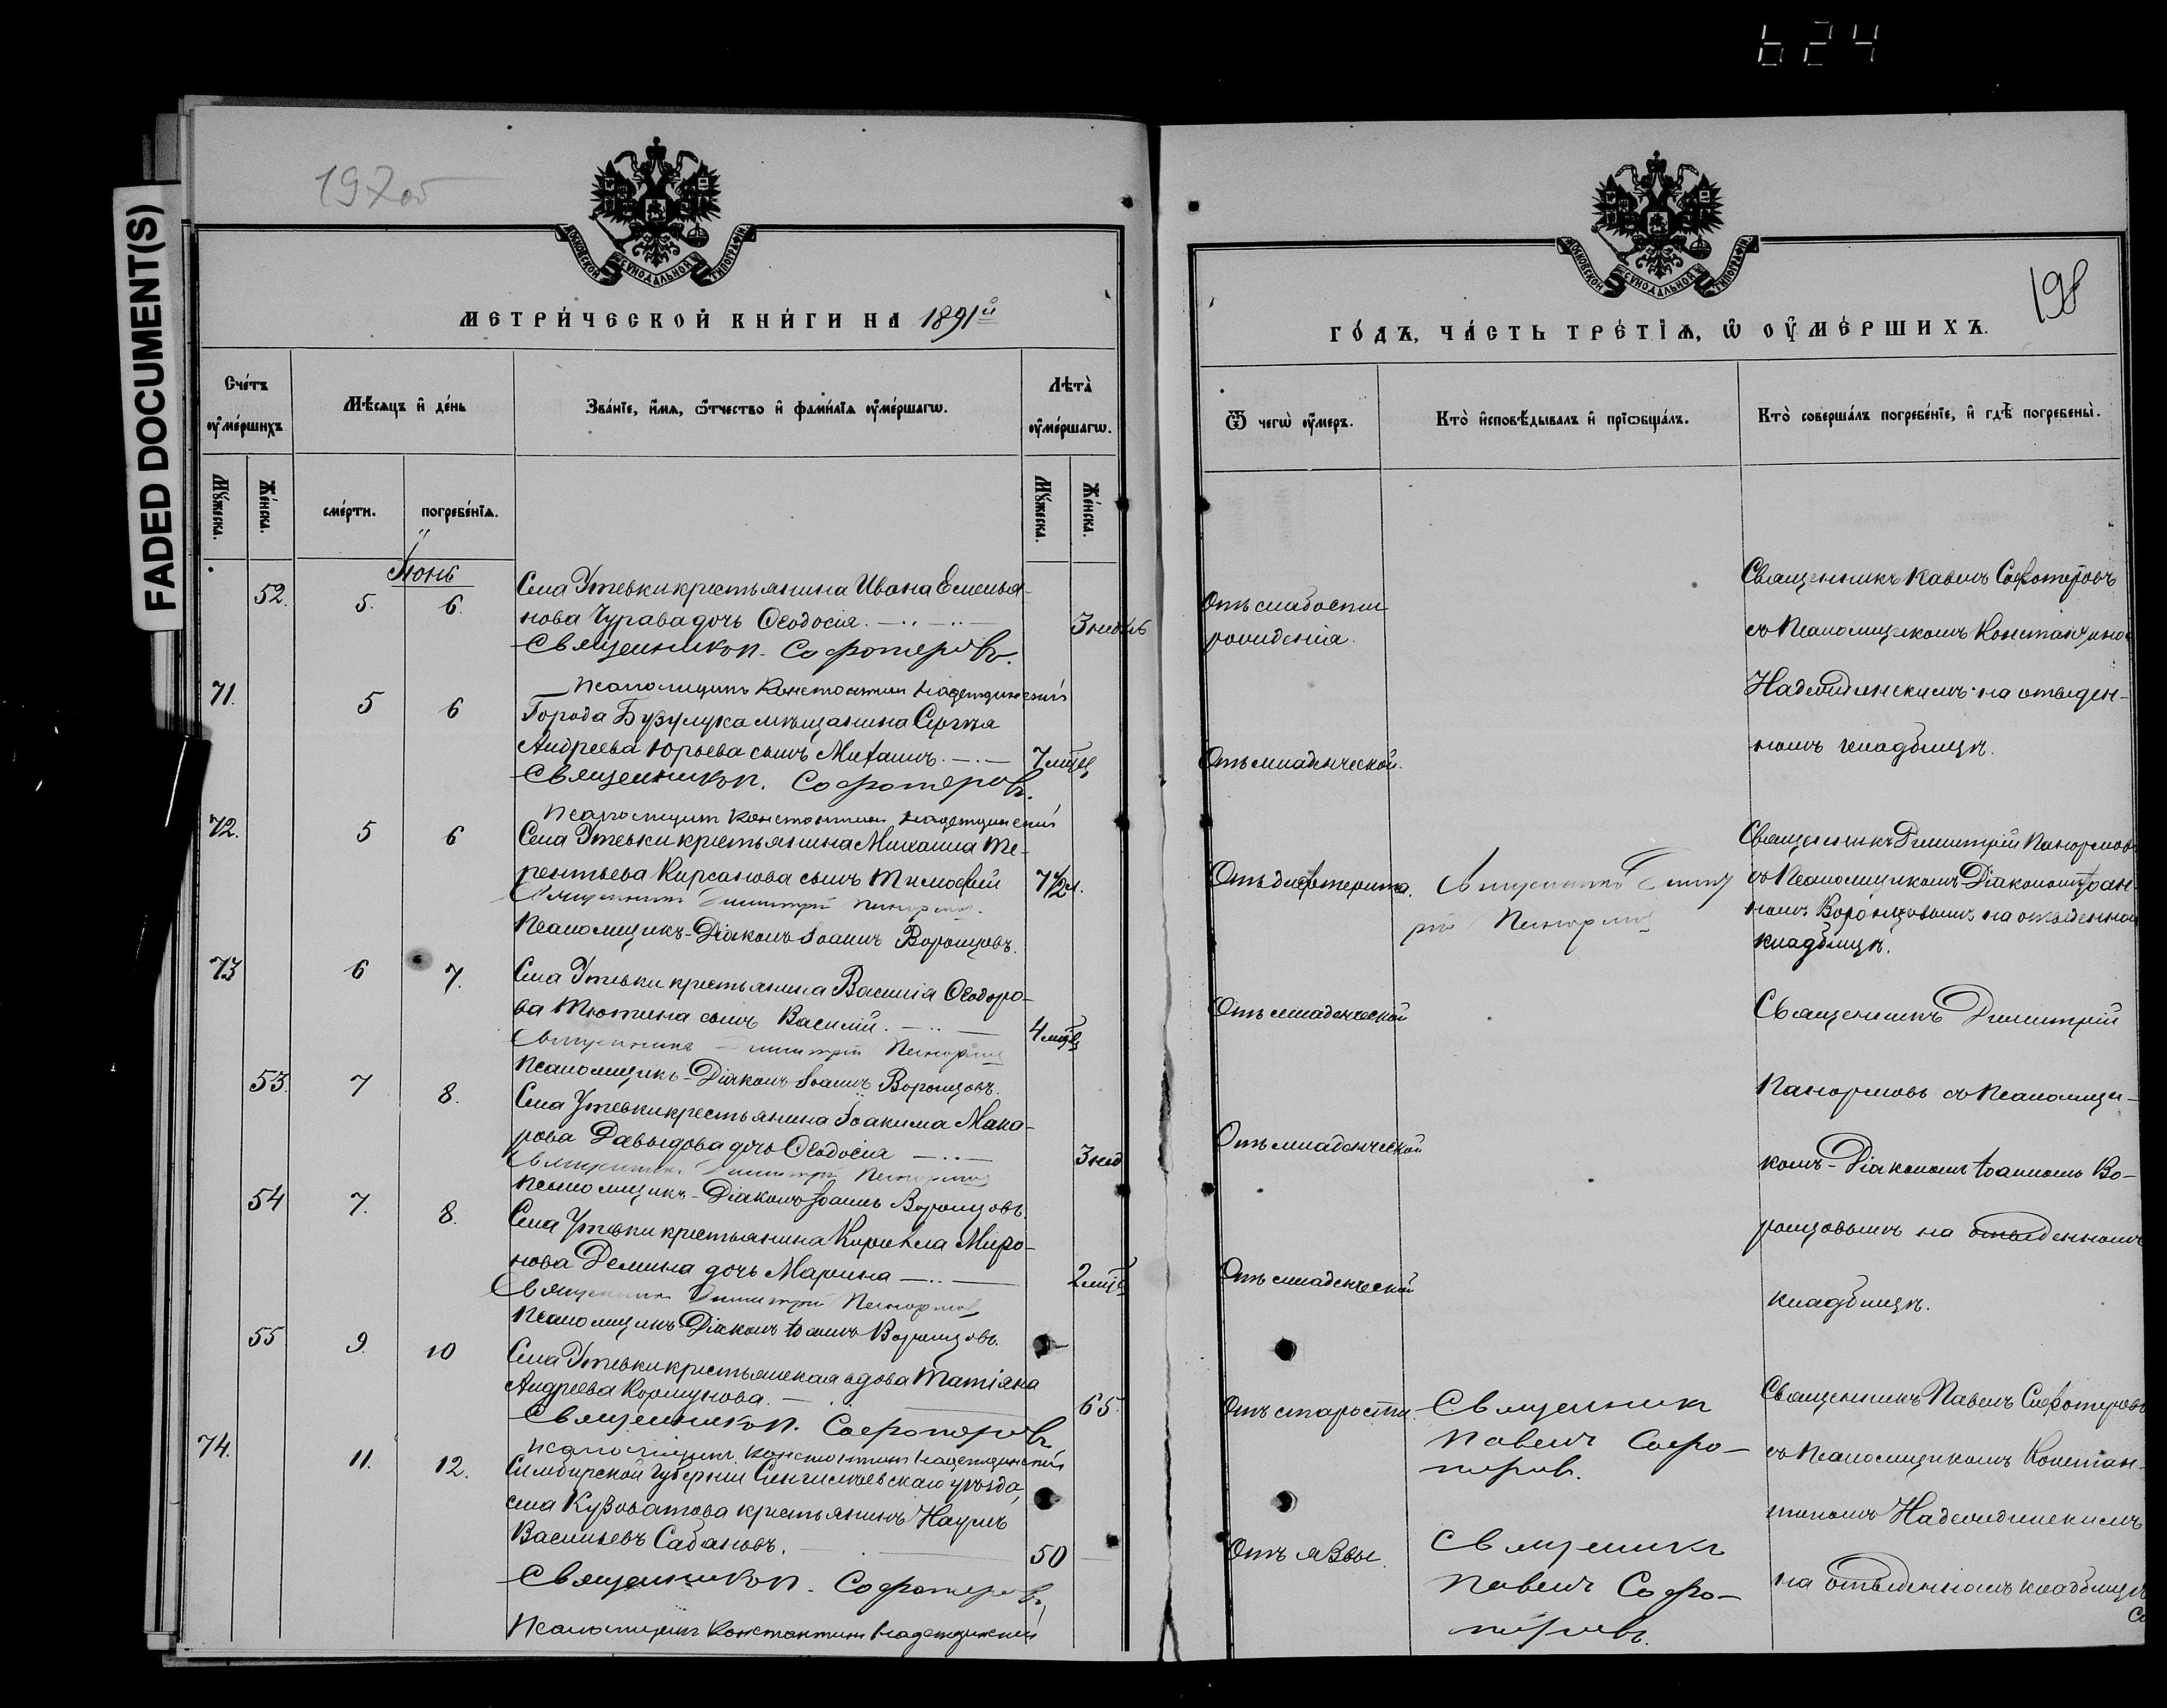 624
FADED DOCUMENT(S)
197об
МОСКОВСКОЙ СѴНОДАЛЬНОЙ ТИПОГРАФІИ
МЕТРИ́ЧЕСКОЙ КНИ́ГИ НА 1891й
Сче́тъ ᲂу҆ме́ршихъ
Мѣ́сяцъ и҆ де́нь
Зва́нїе, и҆́мѧ, ѻ҆́тчество и҆ фами́лїѧ ᲂу҆ме́ршагѡ.
Лѣта̀ ᲂу҆ме́ршагѡ.
Мꙋ́жеска.
Же́нска.
сме́рти.
погребе́нїѧ.
Мꙋ́жеска.
Же́нска.
Іюнь
52. 5. 6.
Села Утевки крестьянина Ивана Емелья-
нова Чурава дочь Ѳеодосія. 3 недѣль
Священникъ П. Софотеровъ.
Псаломщикъ Константинъ Надеждинскій
71. 5 6
Города Бузулука мѣщанина Сергѣя
Андреева Юрьева сынъ Михаилъ. 7 мцв
Священникъ П. Софотеровъ.
Псаломщикъ Константинъ Надеждинскій
72. 5 6
Села Утевки крестьянина Михаила Те-
рентьева Кирсанова сынъ Тимоѳей 7 1/2 л.
Священникъ Димитрій Панормовъ
Псаломщикъ-Діаконъ Іоаннъ Воронцовъ.
73 6 7.
Села Утевки крестьянина Василія Ѳеодоро-
ва Тютина сынъ Василій. 4 мцв
Священникъ Димитрій Панормовъ
Псаломщикъ-Діаконъ Іоаннъ Воронцовъ.
53. 7 8.
Села Утевки крестьянина Іоакима Мака-
рова Давыдова дочь Ѳеодосія 3 нед
Священникъ Димитрій Панормовъ
Псаломщикъ-Діаконъ Іоаннъ Воронцовъ.
54 7. 8.
Села Утевки крестьянина Корнѣла Миро-
нова Демина дочь Марина 2 мцв
Священникъ Димитрій Панормовъ
Псаломщикъ-Діаконъ Іоаннъ Воронцовъ.
55 9. 10
Села Утевки крестьянская вдова Татіяна
Андреева Коршунова. 65.
Священникъ П. Софотеровъ
Псаломщикъ Константинъ Надеждинскій
74. 11. 12.
Симбирской Губерніи Сенгилеевскаго уѣзда,
села Кузоватова крестьянинъ Наумъ
Васильевъ Сабановъ. 50
Священникъ П. Софотеровъ
Псаломщикъ Константинъ Надеждинскій
МОСКОВСКОЙ СѴНОДАЛЬНОЙ ТИПОГРАФІИ
198
ГО́ДЪ, ЧА́СТЬ ТРЕ́ТЇѦ, Ѡ҆ ОУ҆МЕ́РШИХЪ.
Ѿ чегѡ̀ ᲂу҆́меръ.
Кто̀ и҆сповѣ́дывалъ и҆ прїѡбща́лъ.
Кто̀ соверша́лъ погребе́нїе, и҆ гдѣ̀ погребены̀.
Отъ слабости
рожденія.
Священникъ Павелъ Софотеровъ
съ Псаломщикомъ Константино
Надеждинскимъ на отведен-
номъ кладбищѣ.
Отъ младенческой.
Отъ дифтерита.
Священникъ Димит
рій Панормовъ
Священникъ Димитрій Панормовъ
съ Псаломщикомъ Діакономъ Іоан-
номъ Воронцовымъ на отведенном
кладбищѣ.
Отъ младенческой
Священникъ Димитрій
Панормовъ съ Псаломщи-
комъ-Діакономъ Іоанномъ Во-
ронцовымъ на отведенномъ
кладбищѣ.
Отъ младенческой
Отъ младенческой
Отъ старости.
Священникъ
Павелъ Софо-
теровъ.
Священникъ Павелъ Софотеровъ
съ Псаломщикомъ Констан-
тиномъ Надеждинскимъ
на отведенномъ кладбищѣ
Отъ язвы.
Священникъ
Павелъ Софо-
теровъ.